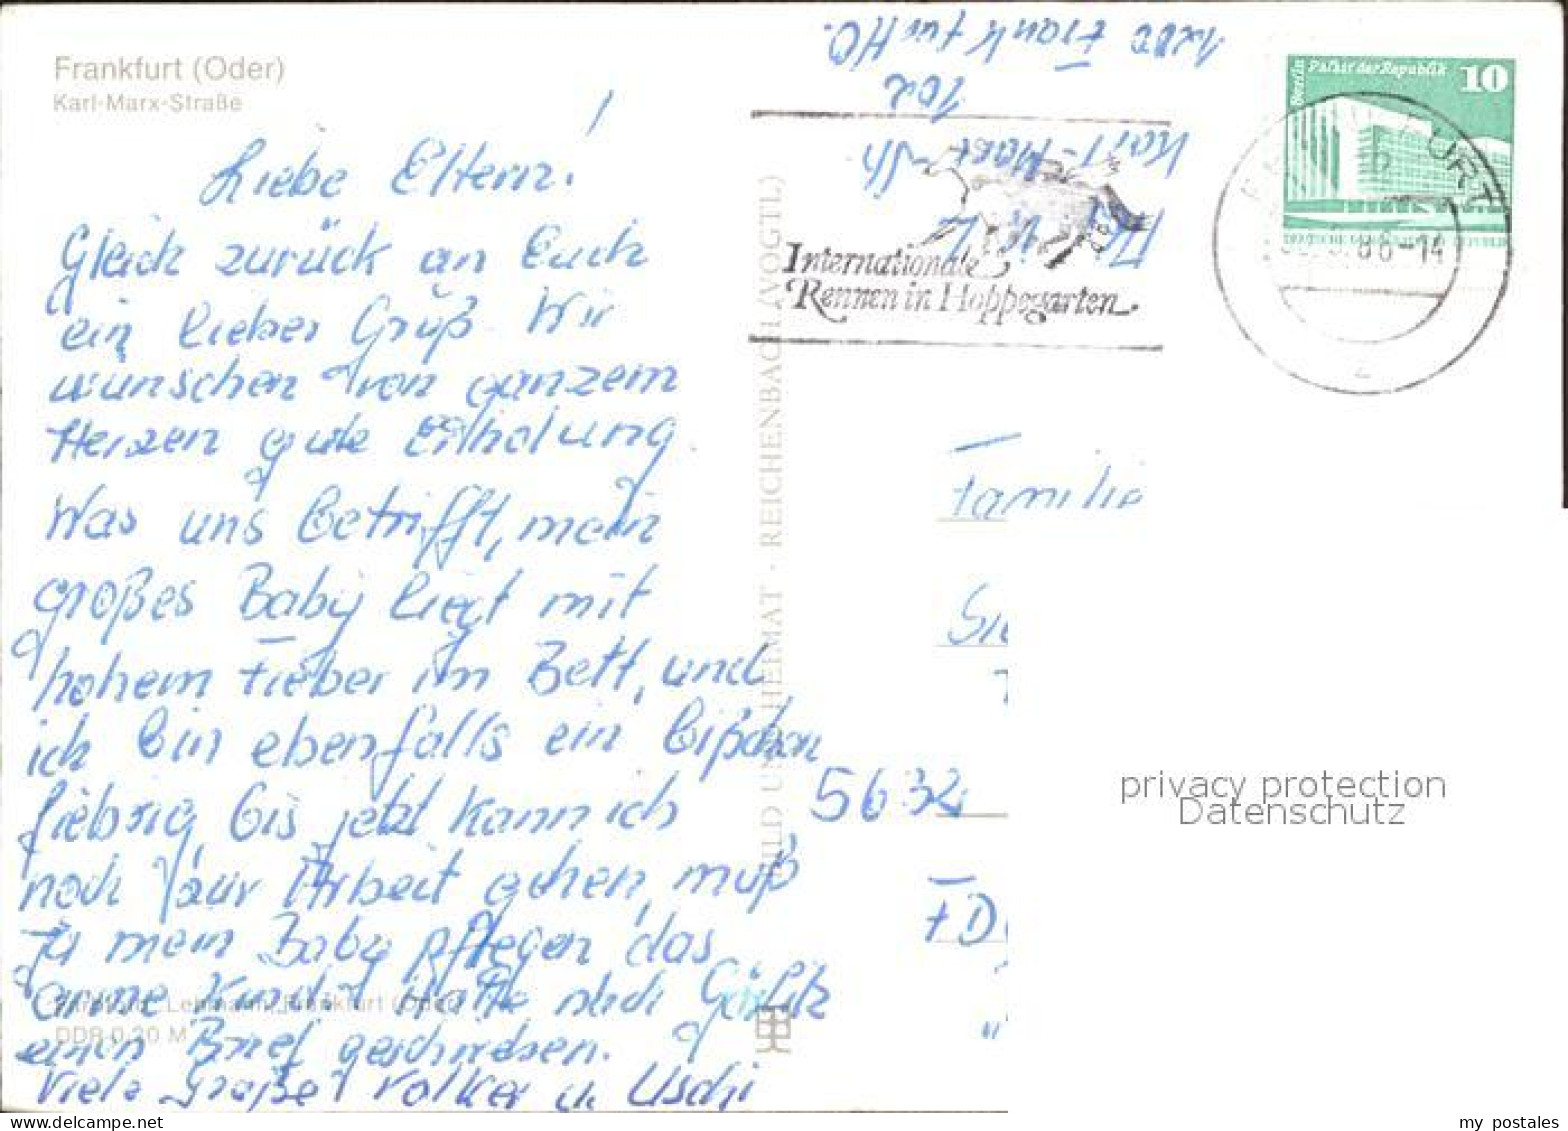 Frankfurt (Oder)
Karl-Marx-Straße
Liebe Eltern!
Gleich zurück an Euch
ein lieber Gruß. Wir
wünschen von ganzem
Herzen gute Erholung.
Was uns betrifft, mein
großes Baby liegt mit
hohem Fieber im Bett, und
ich bin ebenfalls ein bißchen
fiebrig, bis jetzt kann ich
noch zur Arbeit gehen, muß
ja mein Baby pflegen das
arme Kind, hatte nach Görlitz
einen Brief geschrieben.
Viele Grüße Volker u. Uschi
Farbfoto: Lehmann, Frankfurt (Oder)
DDR 0,20 M
BILD UND HEIMAT · REICHENBACH (VOGTL)
1200 Frankfurt/O.
102
Karl-Marx-Str.
Internationale
Rennen in Hoppegarten
Berlin Palast der Republik 10
86-14
Familie
5632
FDG
privacy protection
Datenschutz
my postales